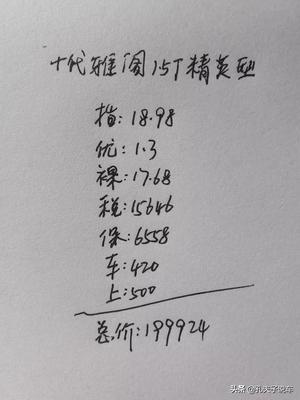 十代雅阁1.5T精英型
指:18.98
优:1.3
裸:17.68
税:15646
保:6558
车:420
上:500
总价:199924
头条 @孔夫子说车